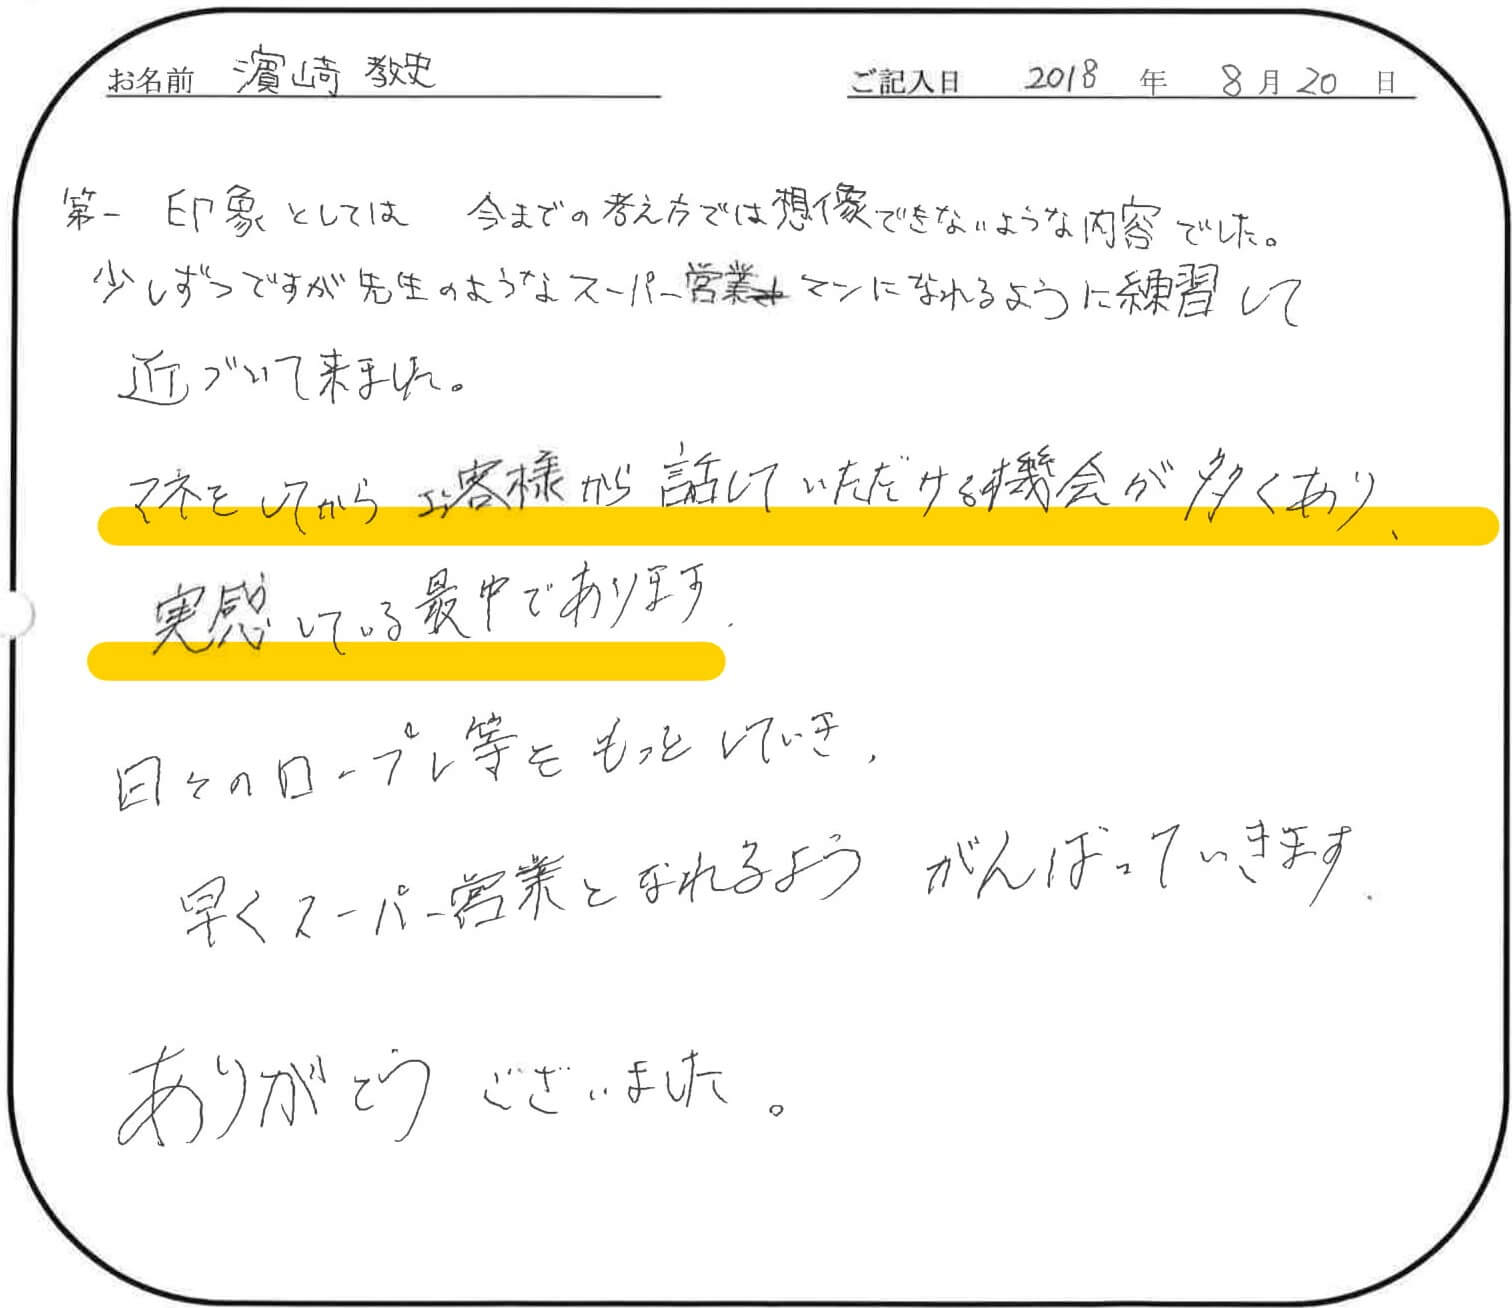 お名前 濵崎 教史 ご記入日 2018 年 8 月 20 日
第一 印象としては 今までの考え方では想像できないような内容でした。
少しずつですが先生のようなスーパー営業マンになれるように練習して
近づいて来ました。
マネをしてから お客様から話していただける機会が多くあり、
実感している最中であります.
日々のロープレ等をもっとしていき,
早くスーパー営業となれるよう がんばっていきます.
ありがとう ございました。